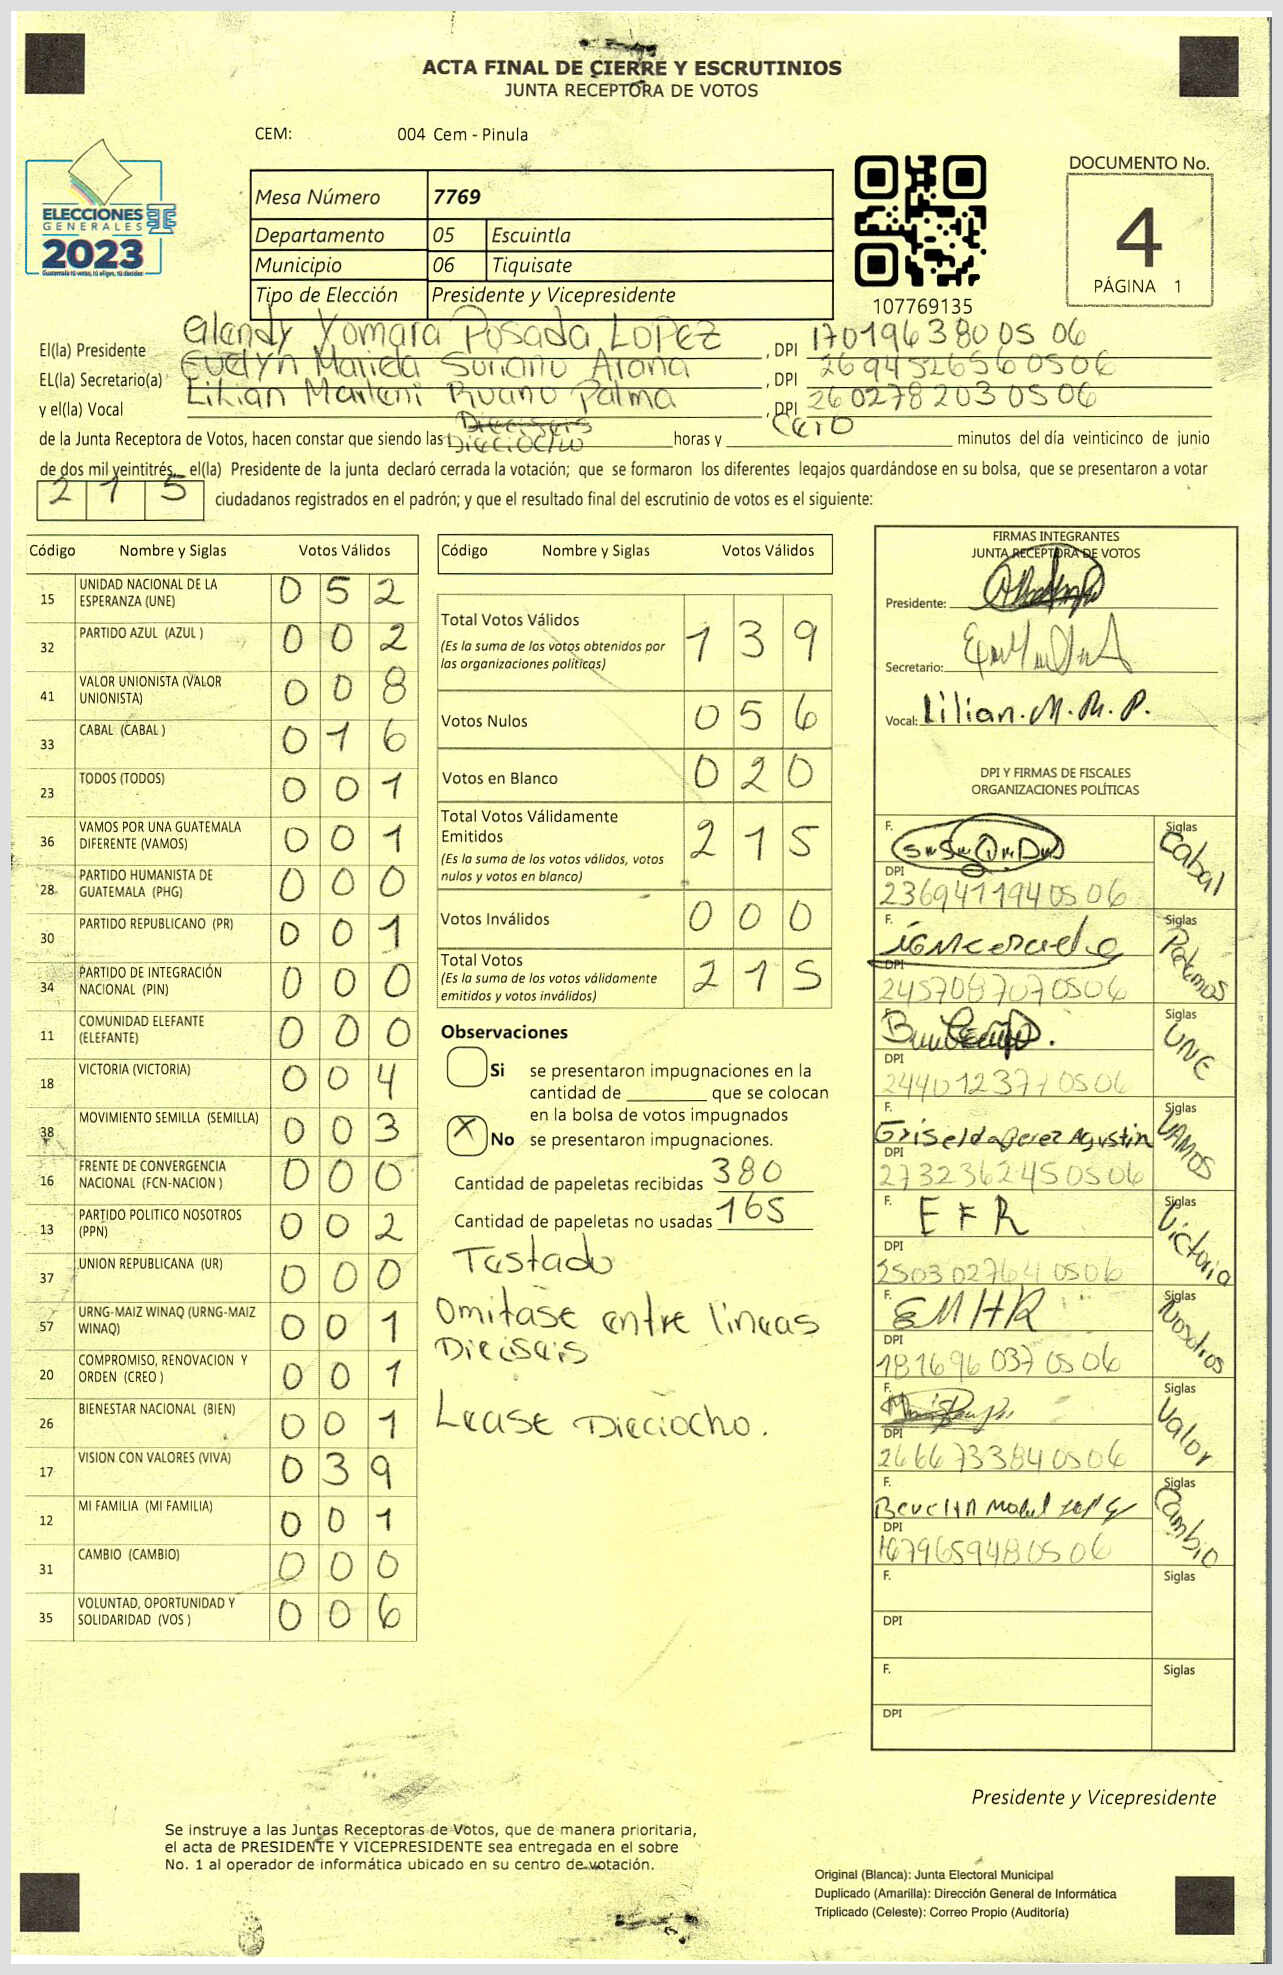 ACTA FINAL DE CIERRE Y ESCRUTINIOS
JUNTA RECEPTORA DE VOTOS
CEM: 004 Cem - Pinula
ELECCIONES
GENERALES
2023
Guatemala tú votas, tú eliges, tú decides
Mesa Número 7769
Departamento 05 Escuintla
Municipio 06 Tiquisate
Tipo de Elección Presidente y Vicepresidente
107769135
DOCUMENTO No.
4
PÁGINA 1
El(la) Presidente Glendy Xomara Posada Lopez, DPI 170196380 05 06
EL(la) Secretario(a) Evelyn Mariela Soriano Arana, DPI 269452656 0506
y el(la) Vocal Lilian Marleni Ruano Palma, DPI 260278203 0506
Dieciseis
de la Junta Receptora de Votos, hacen constar que siendo las Dieciocho horas y Cero minutos del día veinticinco de junio
de dos mil veintitrés, el(la) Presidente de la junta declaró cerrada la votación; que se formaron los diferentes legajos guardándose en su bolsa, que se presentaron a votar
2 1 5 ciudadanos registrados en el padrón; y que el resultado final del escrutinio de votos es el siguiente:
Código Nombre y Siglas Votos Válidos
15 UNIDAD NACIONAL DE LA ESPERANZA (UNE) 0 5 2
32 PARTIDO AZUL (AZUL ) 0 0 2
41 VALOR UNIONISTA (VALOR UNIONISTA) 0 0 8
33 CABAL (CABAL ) 0 1 6
23 TODOS (TODOS) 0 0 1
36 VAMOS POR UNA GUATEMALA DIFERENTE (VAMOS) 0 0 1
28 PARTIDO HUMANISTA DE GUATEMALA (PHG) 0 0 0
30 PARTIDO REPUBLICANO (PR) 0 0 1
34 PARTIDO DE INTEGRACIÓN NACIONAL (PIN) 0 0 0
11 COMUNIDAD ELEFANTE (ELEFANTE) 0 0 0
18 VICTORIA (VICTORIA) 0 0 4
38 MOVIMIENTO SEMILLA (SEMILLA) 0 0 3
16 FRENTE DE CONVERGENCIA NACIONAL (FCN-NACION ) 0 0 0
13 PARTIDO POLITICO NOSOTROS (PPN) 0 0 2
37 UNION REPUBLICANA (UR) 0 0 0
57 URNG-MAIZ WINAQ (URNG-MAIZ WINAQ) 0 0 1
20 COMPROMISO, RENOVACION Y ORDEN (CREO ) 0 0 1
26 BIENESTAR NACIONAL (BIEN) 0 0 1
17 VISION CON VALORES (VIVA) 0 3 9
12 MI FAMILIA (MI FAMILIA) 0 0 1
31 CAMBIO (CAMBIO) 0 0 0
35 VOLUNTAD, OPORTUNIDAD Y SOLIDARIDAD (VOS ) 0 0 6
Código Nombre y Siglas Votos Válidos
Total Votos Válidos 1 3 9
(Es la suma de los votos obtenidos por
las organizaciones políticas)
Votos Nulos 0 5 6
Votos en Blanco 0 2 0
Total Votos Válidamente
Emitidos 2 1 5
(Es la suma de los votos válidos, votos
nulos y votos en blanco)
Votos Inválidos 0 0 0
Total Votos 2 1 5
(Es la suma de los votos válidamente
emitidos y votos inválidos)
Observaciones
Si se presentaron impugnaciones en la
cantidad de ________ que se colocan
en la bolsa de votos impugnados
X No se presentaron impugnaciones.
Cantidad de papeletas recibidas 380
Cantidad de papeletas no usadas 165
Tastado
Omitase entre lineas
Diecisais
Lease Dieciocho.
FIRMAS INTEGRANTES
JUNTA RECEPTORA DE VOTOS
Presidente:
Secretario:
Vocal: Lilian. M. R. P.
DPI Y FIRMAS DE FISCALES
ORGANIZACIONES POLÍTICAS
F. Siglas Cabal
DPI 236941194 05 06
F. Siglas Podemos
DPI 245708707 0506
F. Siglas UNE
DPI 244012371 0506
F. Griselda Perez Agustin Siglas VAMOS
DPI 273236245 0506
F. E F R Siglas Victoria
DPI 250302764 0506
F. EMHR Siglas Nosotros
DPI 181696037 0506
F. Siglas Valor
DPI 266673384 0506
F. Siglas Cambio
DPI 167965948 0506
F. Siglas
DPI
F. Siglas
DPI
Presidente y Vicepresidente
Se instruye a las Juntas Receptoras de Votos, que de manera prioritaria,
el acta de PRESIDENTE Y VICEPRESIDENTE sea entregada en el sobre
No. 1 al operador de informática ubicado en su centro de votación.
Original (Blanca): Junta Electoral Municipal
Duplicado (Amarilla): Dirección General de Informática
Triplicado (Celeste): Correo Propio (Auditoría)